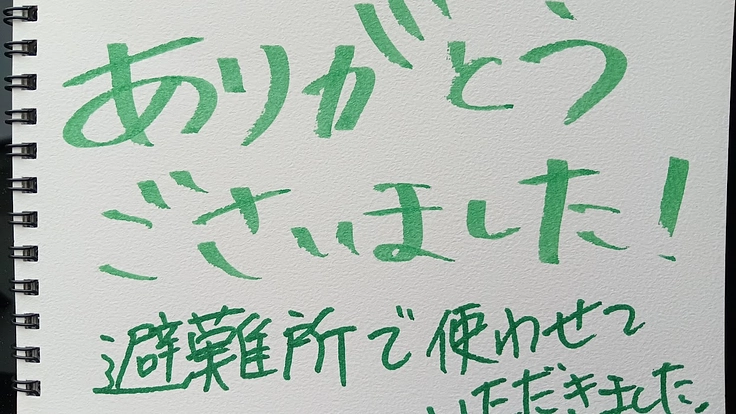 ありがとう
ございました!
避難所で使わせて
いただきました。